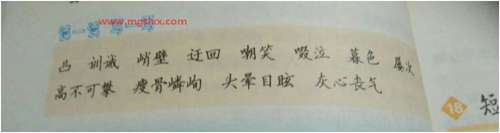 www.mgshxx.com
读一读 写一写
凸 训诫 峭壁 迂回 嘲笑 啜泣 暮色 屡次
高不可攀 瘦骨嶙峋 头晕目眩 灰心丧气
18 短